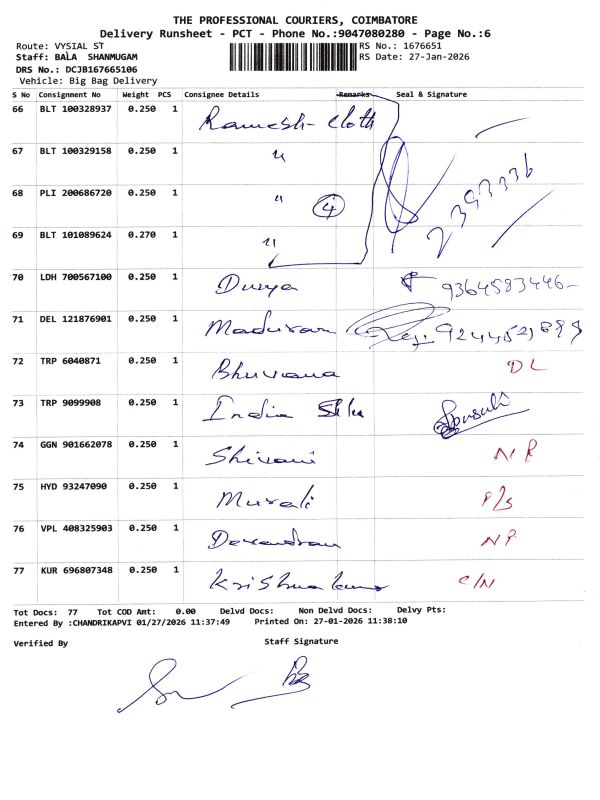 THE PROFESSIONAL COURIERS, COIMBATORE
Delivery Runsheet - PCT - Phone No.:9047080280 - Page No.:6
Route: VYSIAL ST RS No.: 1676651
Staff: BALA SHANMUGAM RS Date: 27-Jan-2026
DRS No.: DCJB167665106
Vehicle: Big Bag Delivery
S No Consignment No Weight PCS Consignee Details Remarks Seal & Signature
66 BLT 100328937 0.250 1 Ramesh-Cloth
67 BLT 100329158 0.250 1 "
68 PLI 200686720 0.250 1 " 4
69 BLT 101089624 0.270 1 "
70 LDH 700567100 0.250 1 Durga 9364583446
71 DEL 121876901 0.250 1
72 TRP 6040871 0.250 1 Bhuvana DL
73 TRP 9099908 0.250 1 India Silk
74 GGN 901662078 0.250 1 Shivani NR
75 HYD 93247090 0.250 1 Murali P/S
76 VPL 408325903 0.250 1 Devendran NP
77 KUR 696807348 0.250 1 Krishnakumar C/N
Tot Docs: 77 Tot COD Amt: 0.00 Delvd Docs: Non Delvd Docs: Delvy Pts:
Entered By :CHANDRIKAPVI 01/27/2026 11:37:49 Printed On: 27-01-2026 11:38:10
Verified By Staff Signature